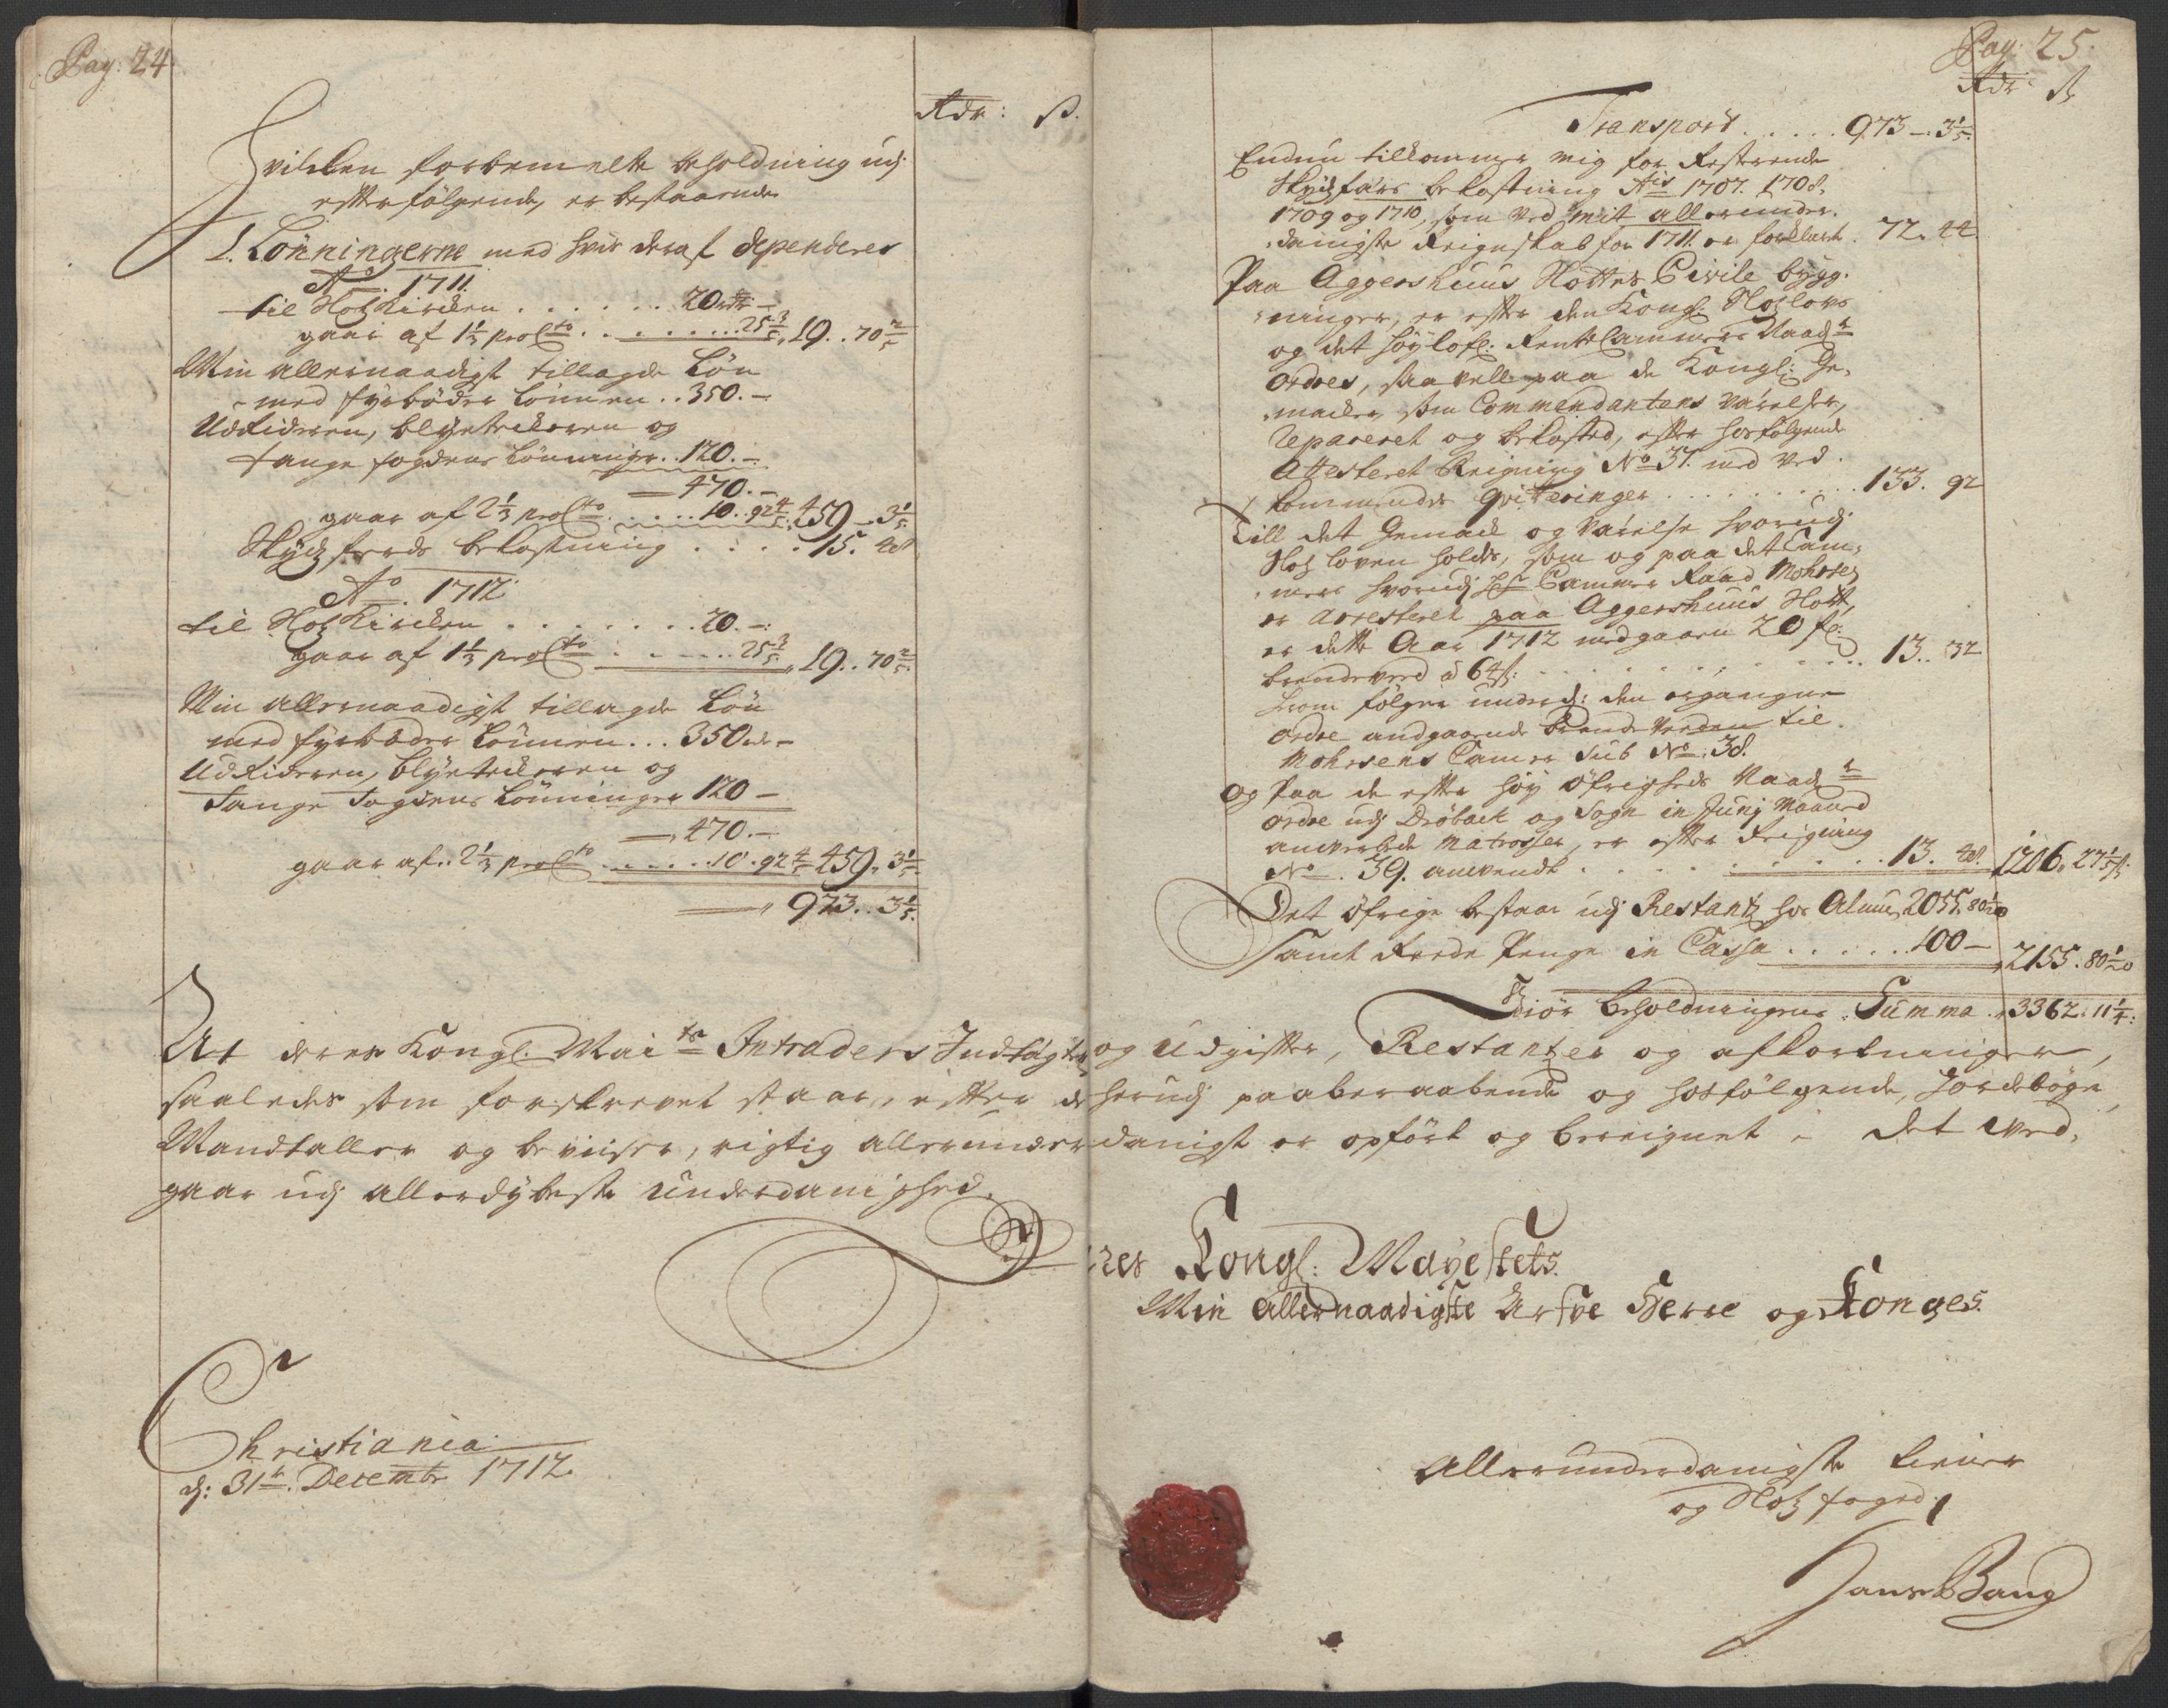 Pag: 24
Rdr: ß.
Hvilken forbemelte beholdning udj
effterfölgende, er bestaaende
1. Lönningerne med hvis deraf dependerer
Ao. 1711.
til Slotz Kircken . . . . . . 20 rdr –
gaar af 1 1/3 pro Cto . . . . . . . 25 3/5. 19. . 70 2/5
Min allernaadigst tillagde Lön
med fyrböder Lönnen . . 350. –
Udrideren, blytrekeren og
fange fogdens Lönninger . . 120. –
470. –
gaar af 2 1/3 pro Cto . . . . . 10. . 92 4/5. 459 – 3 1/5
Skydtzferds bekostning . . . . 15. 48
Ao. 1712
til Slotz Kircken . . . . . . . 20. –
gaar af 1 1/3 pro Cto . . . . . 25 3/5. 19. . 70 2/5.
Min allernaadigst tillagde Lön
med fyrböder Lönnen . . . 350 rdr –
Udrideren, blytrekeren og
Fange Fogdens Lönninger 120 –
470. –
gaar af . . 2 1/3 pro Cto . . . . . 10. 92 4/5 459. 3 1/5
973. . 3 1/5.
Pag: 25.
Rdr ß
Transport . . . . . 973 –. 3 1/5.
Endnu tilkommer mig for Resterende
Skydtzfärs bekostning Ais 1707. 1708.
1709 og 1710, som ved mit allerunder-
danigste Reigneskab for 1711. er forklaret . 72. 44.
Paa Aggershuus Slottes Civile byg-
ninger, er effter den Kongl. Slotzlovs
og det höylofl. Rente Cammers Naadr
ordres, saavell paa de Kongl: Ge-
macker, som Commendantens Värelser,
repareret og bekosted, effter hosfölgende
Attesteret Reigning No 37. med ved-
kommendes qvitteringer . . . . . . . . . . 133. 92
Till det Gemack og Värelse hvorudj
Slotz loven holdes, som og paa det Cam-
mer hvorudj Hr Cammer Raad Mohrsen
er arresteret paa Aggershuus Slott,
er dette Aar 1712 medgaaen 20 fl:
brendeved á 64 ß: . . . . . . . . . . 13. . 32
hrom fölger underd: den ergangne
ordre andgaaende brende veden til
Mohrsens Camer Sub No. 38.
og Paa de effter höy Öfrigheds Naadr
ordre udj Dröback og Sogn in Junj Maaned
anverfvede Matrosser, er effter Reigning
No. 39. anvendt . . . . . . . . 13. 48. 1206. 27 1/5 ß.
Det öfrige bestaar udj Restantz hos Almue 2055. 80 1/20
samt Rede Penge in Cassa . . . . . 100 – 2155. 80 1/20
Giör beholdningens Summa . 3362. 11 1/4:
At deres Kongl. Maits Intraders Indtägter og Udgifter, Restantzer og afkortninger,
saaledes som forskrevet staar, effter de herudj paaberaabende og hosfölgende, Jordeböger,
Mandtaller og beviiser, rigtig allerunderdanigst er opfört og bereignet; det ved-
gaar udj allerdybeste Underdanighed.
Deres Kongl: Mayestets.
Min Allernaadigste Arfve Herre og Konges.
Christiania
d: 31te Decembr 1712.
Allerunderdanigste tiener
og Slotz foged
Hans Bang